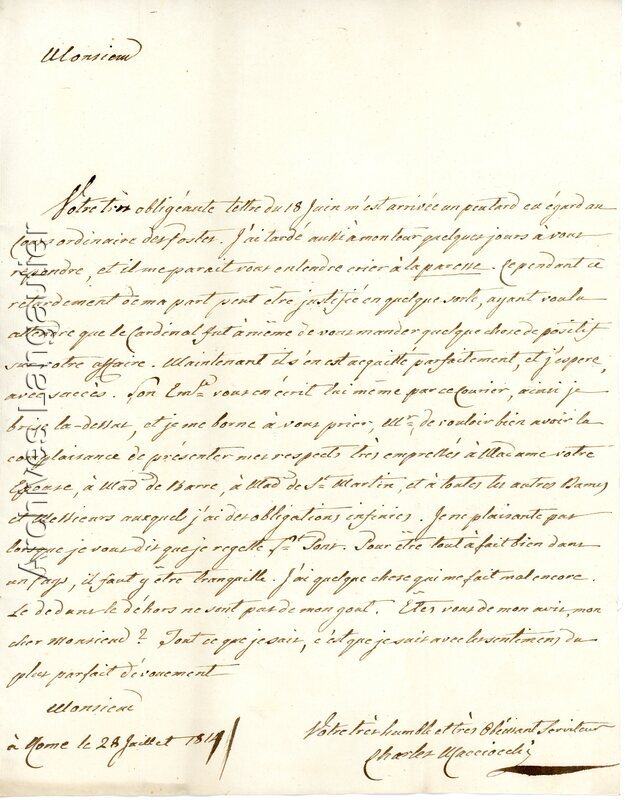 Monsieur
Votre très obligéante lettre du 18 Juin m'est arrivée un peu tard eu égard au
Cours ordinaire des Postes. J'ai tardé aussi à mon tour quelques jours à vous
répondre, et il me parait vous entendre crier à la paresse. Cependant ce
retardement de ma part peut être justifié en quelque sorte, ayant voulu
attendre que le Cardinal fut à même de vous mander quelque chose de positif
sur votre affaire. Maintenant il s'en est acquitté parfaitement, et j'espere,
avec succès. Son Em.ce vous en écrit lui même par ce Courier, ainsi je
brise la-dessus, et je me borne à vous prier, Mr. de vouloir bien avoir la
complaisance de présenter mes respects très empressés à Madame votre
Epouse, à Mad. de Barre, à Mad. de St. Martin, et à toutes les autres Dames
et Messieurs auxquels j'ai des obligations infinies. Je ne plaisante pas
lorsque je vous dis que je regette St. Pons. Pour être tout à fait bien dans
un pays, il faut y être tranquille. J'ai quelque chose qui me fait mal encore.
Le dedans le déhors ne sont pas de mon gout. Êtes vous de mon avis, mon
cher Monsieur? Tout ce que je sais, c'est que je suis avec les sentimens du
plus parfait dévouement
Monsieur
à Rome le 28 Juillet 1814
Votre très humble et très Obéissant Serviteur
Charles Macciocchi